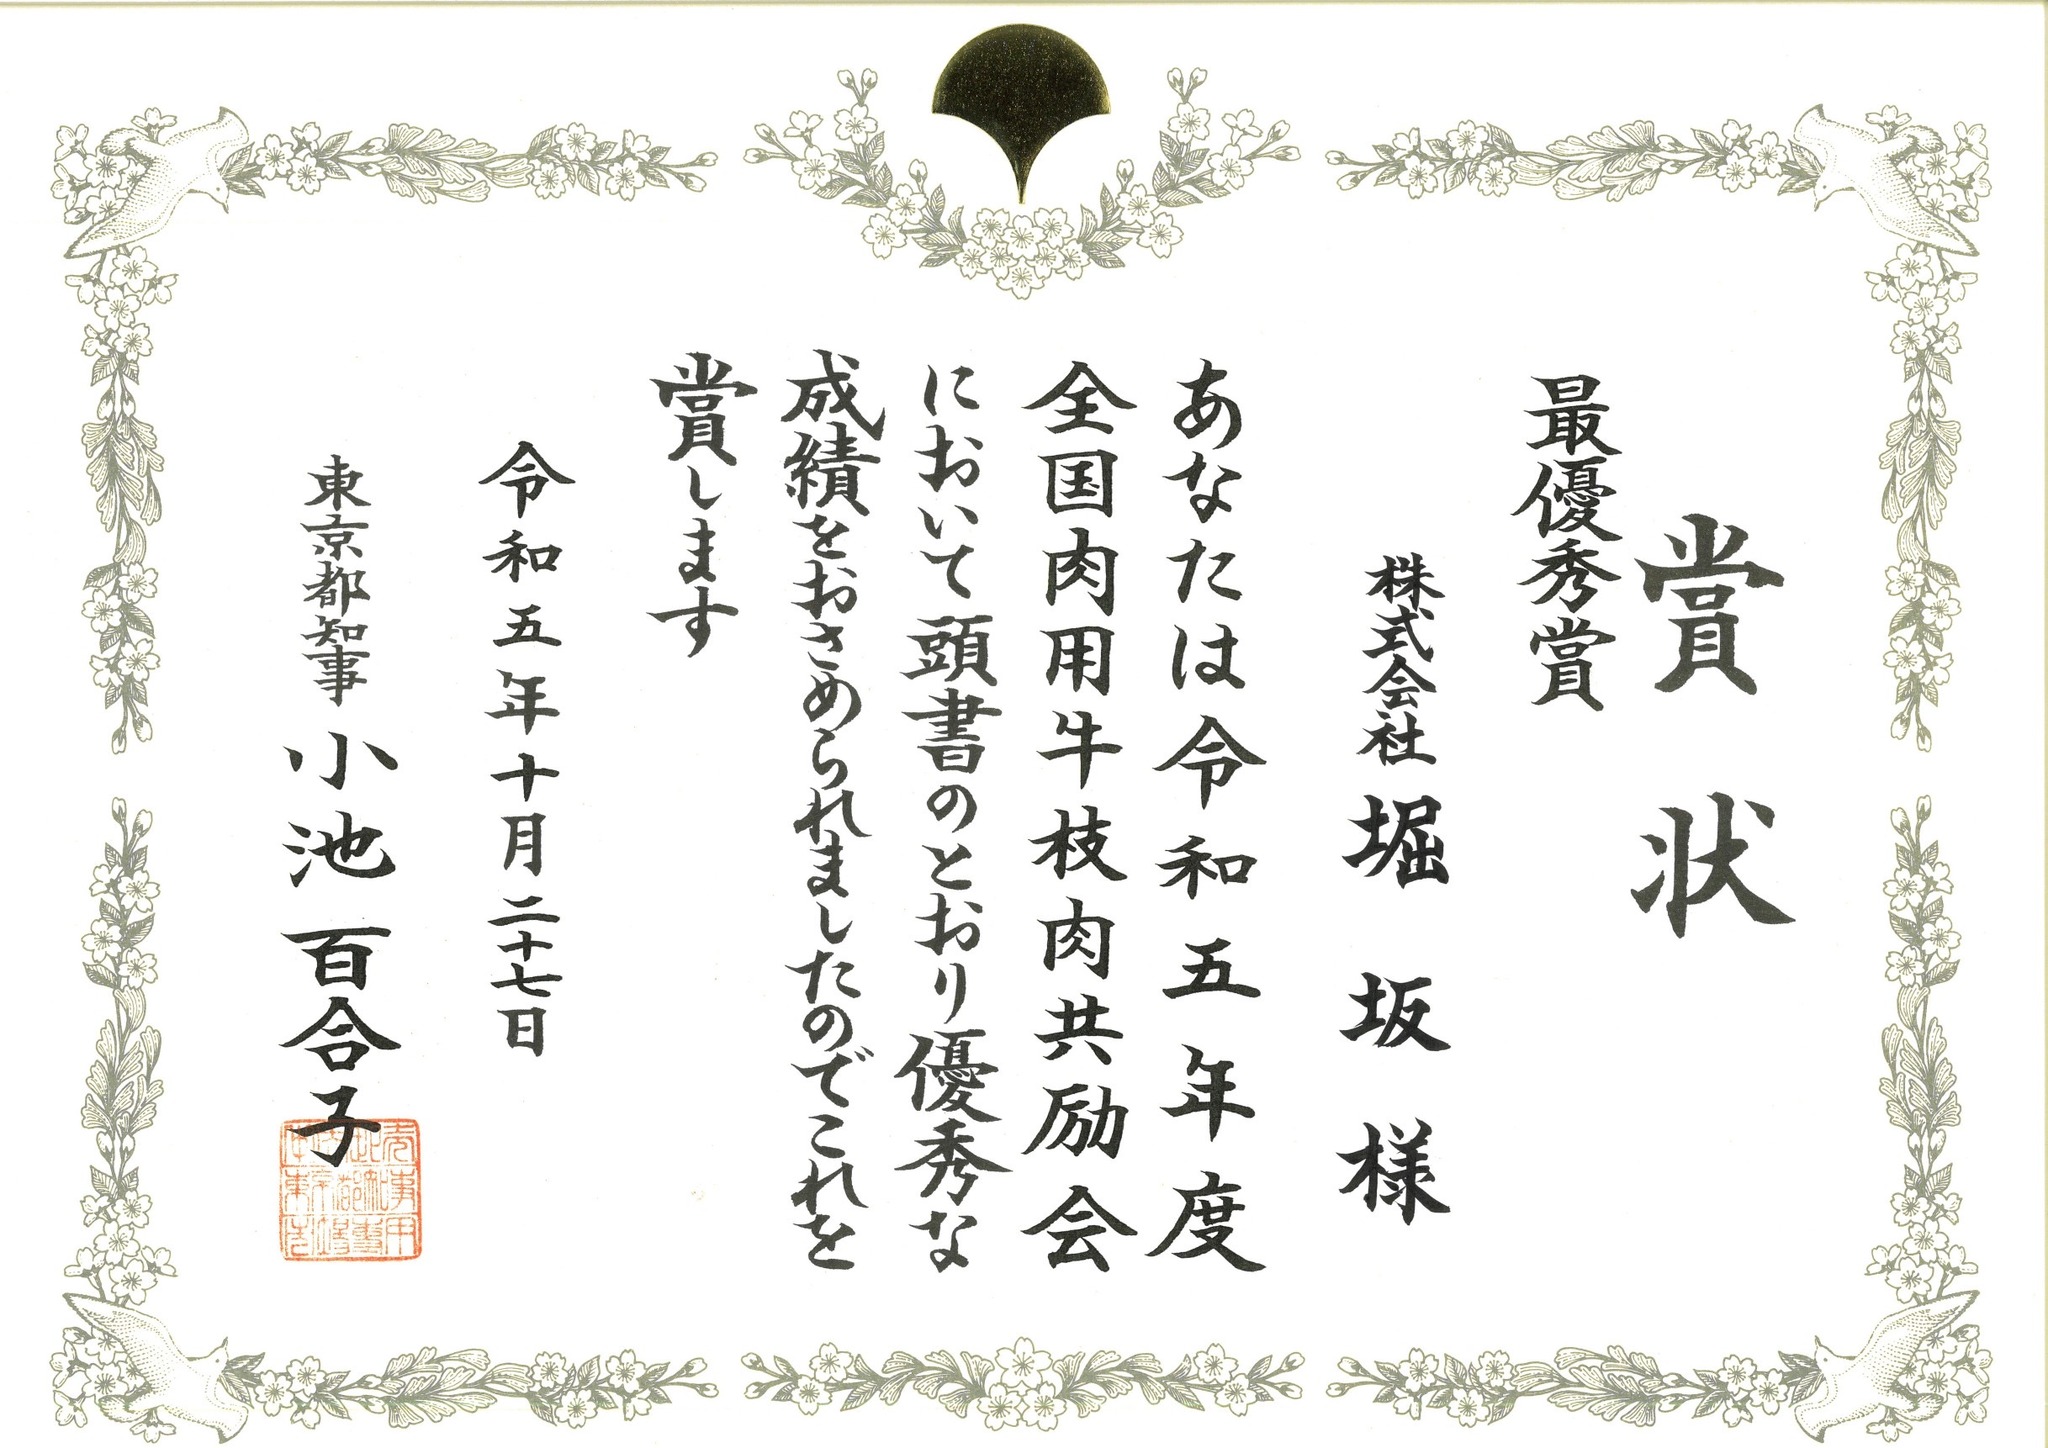 賞状
最優秀賞
株式会社 堀坂様
あなたは令和五年度
全国肉用牛枝肉共励会
において頭書のとおり優秀な
成績をおさめられましたのでこれを
賞します
令和五年十月二十七日
東京都知事 小池百合子